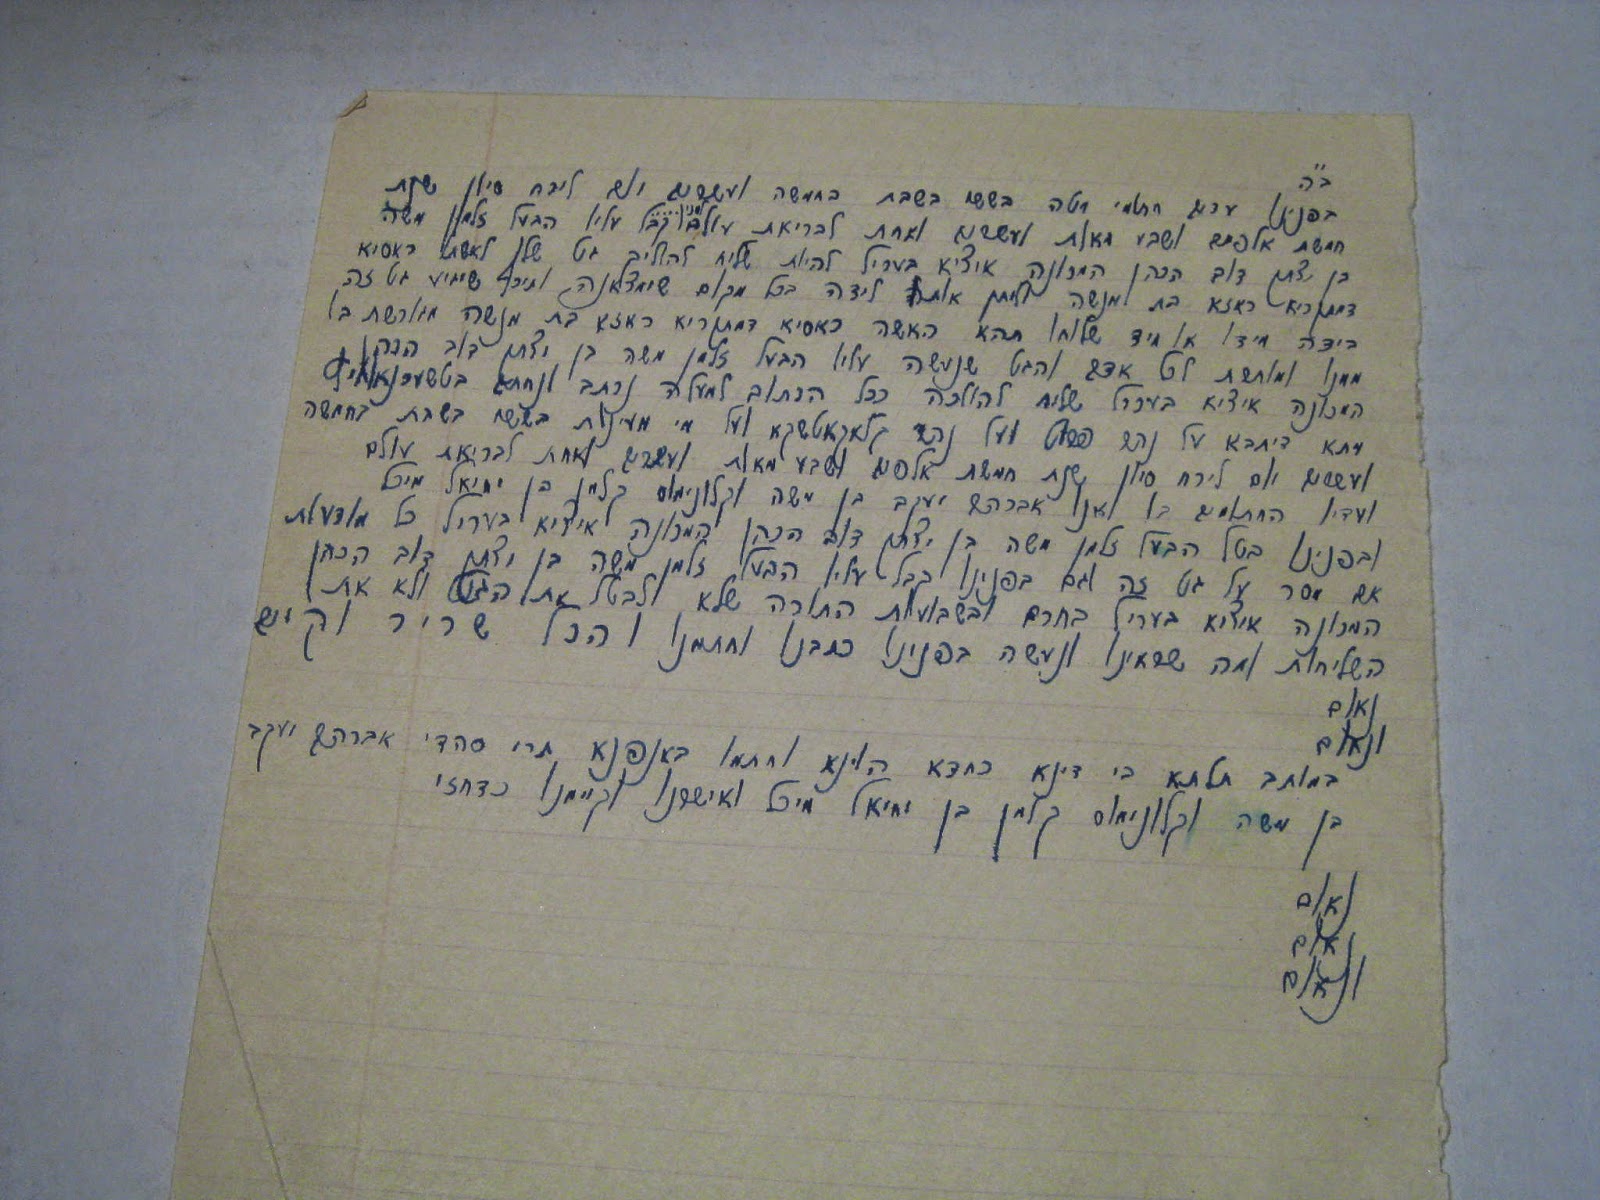 ב״ה
בפנינו עדים חתומי מטה בששי בשבת בחמשה ועשרים יום לירח סיון שנת
חמשת אלפים ושבע מאות ועשרים ואחת לבריאת עולם למנין... קבל עליו הבעל זלמן משה
בן יצחק דוב הכהן המכונה איציא בעריל להיות שליח להוליך גט שלו לאשתו ראסיא
דמתקריא ראזא בת מנשה וליתן אותו לידה בכל מקום שימצאנה ותיכף שיגיע גט זה
בידה מידו או מיד שלוחו תהא האשה ראסיא דמתקריא ראזא בת מנשה מגורשת בו
ממנו ומותרת לכל אדם והגט שנעשה עליו הבעל זלמן משה בן יצחק דוב הכהן
המכונה איציא בעריל שליח להולכה ככל הכתוב למעלה נכתב ונחתם
מתא דיתבא על נהר פרוט ועל נהר קלאקאטשקא ועל מי מעינות בששי בשבת בחמשה
ועשרים יום לירח סיון שנת חמשת אלפים ושבע מאות ועשרים ואחת לבריאת עולם
ועדיו החתומים בו אנו אברהם יעקב בן משה וקלונימוס קלמן בן יחיאל מיכל
ובפנינו בטל הבעל זלמן משה בן יצחק דוב הכהן המכונה איציא בעריל כל מודעות
אם מסר על גט זה וגם בפנינו קבל עליו הבעל זלמן משה בן יצחק דוב הכהן
המכונה איציא בעריל בחרם ובשבועות התורה שלא לבטל את הגט ולא את
השליחות ומה שראינו ונעשה בפנינו כתבנו וחתמנו והכל שריר וקים
נאום
ונאום
במותב תלתא בי דינא כחדא הוינא וחתמו באנפנא תרי סהדי אברהם יעקב
בן משה וקלונימוס קלמן בן יחיאל מיכל ואישרנו וקיימנו כדחזי
נאום
נאום
ונאום